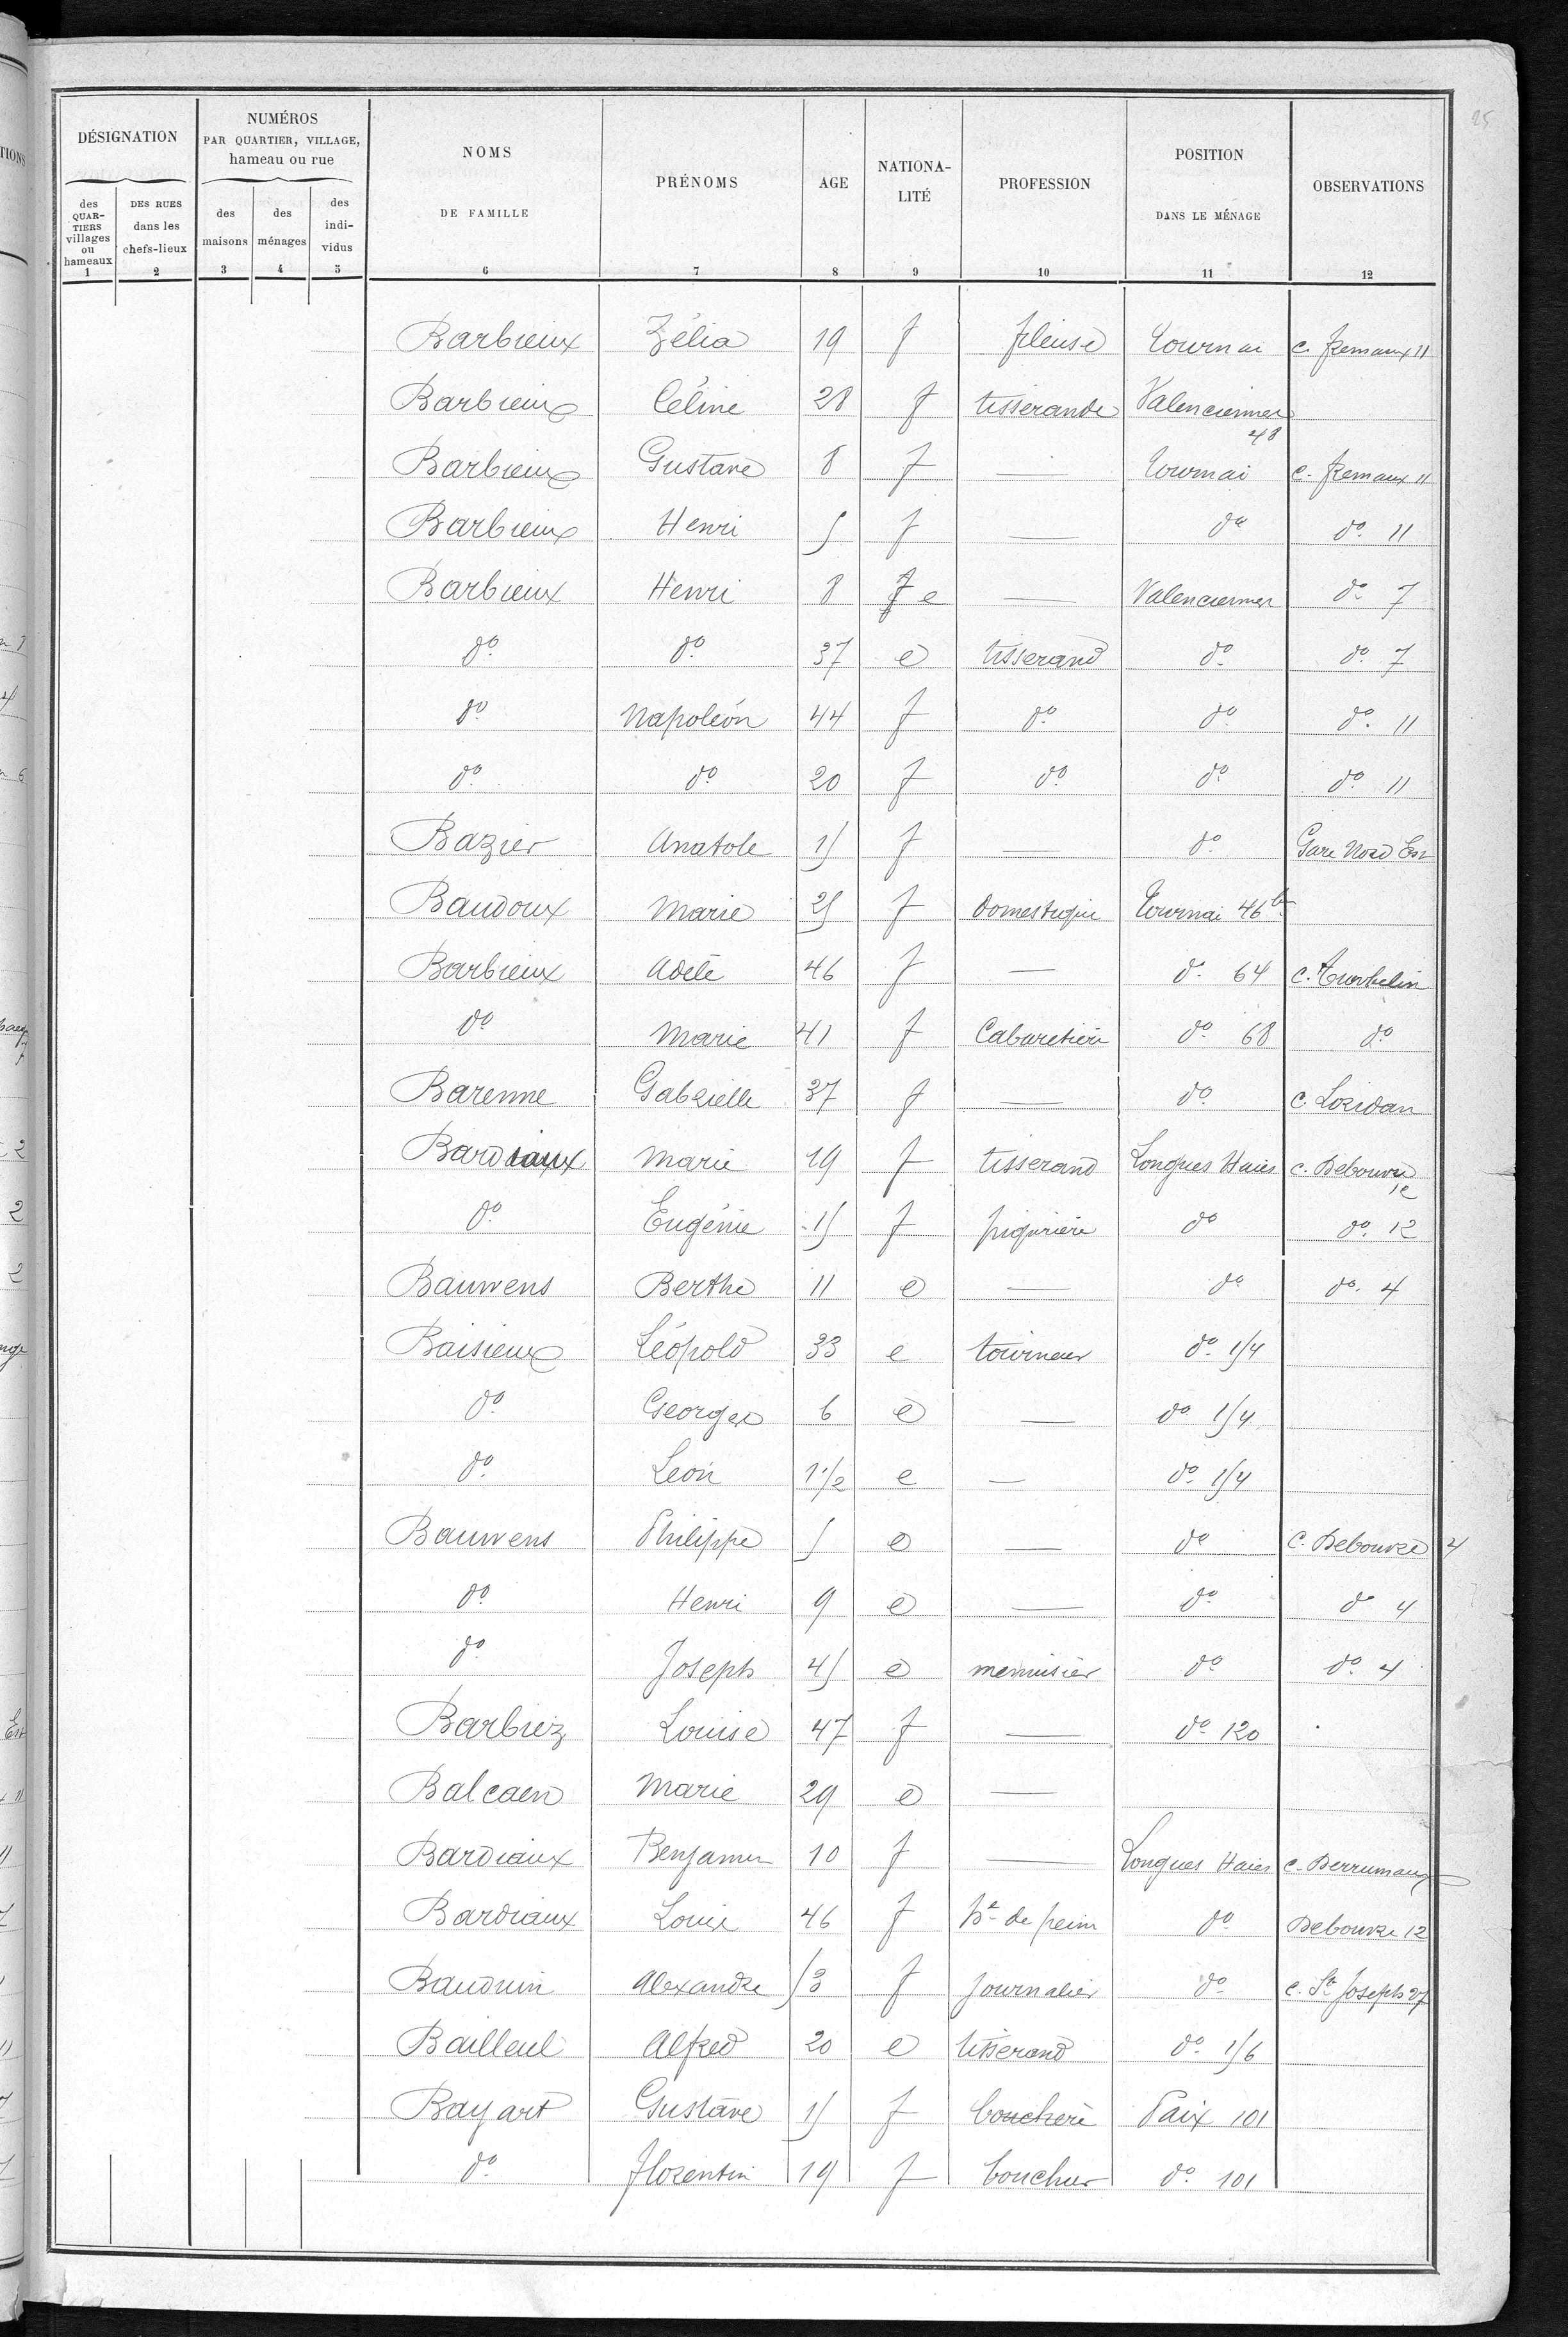 25
DÉSIGNATION
des QUARTIERS villages ou hameaux
1
DES RUES dans les chefs-lieux
2
NUMÉROS
PAR QUARTIER, VILLAGE,
hameau ou rue
des maisons
3
des ménages
4
des indi-vidus
5
NOMS
DE FAMILLE
6
PRÉNOMS
7
AGE
8
NATIONA-
LITÉ
9
PROFESSION
10
POSITION
DANS LE MÉNAGE
11
OBSERVATIONS
12
Barbieux Zélia 19 f fileuse Tournai c. Fremaux 11
Barbieux Céline 28 f tisserande Valenciennes 48
Barbieux Gustave 8 f — Tournai c. Fremaux 11
Barbieux Henri 5 f — do do 11
Barbieux Henri 8 f e — Valenciennes do 7
do do 37 e tisserand do do 7
do Napoléon 44 f do do do 11
do do 20 f do do do 11
Bazier Anatole 15 f — do Gare Nord Est
Baudoux Marie 25 f domestique Tournai 46 bis
Barbieux Adèle 46 f — do 64 c. Turbelin
do Marie 41 f Cabaretière do 68 do
Barenne Gabrielle 37 f — do C. Loridan
Bardiaux Marie 19 f tisserand Longues Haies c. Debouvrie 12
do Eugénie 15 f piqurière do do 12
Bauwens Berthe 11 e — do do 4
Baisieux Léopold 33 e tourneur do 154
do Georges 6 e — do 154
do Léon 1 1/2 e — do 154
Bauwens Philippe 5 e — do C. Debouvrie 4
do Henri 9 e — do do 4
do Joseph 45 e menuisier do do 4
Barbiez Louise 47 f — do 120
Balcaen Marie 29 e —
Bardiaux Benjamin 10 f — Longues Haies c. Derrumaux
Bardiaux Louis 46 f hme de peine do Debouvrie 12
Bauduin Alexandre 53 f journalier do c. St Joseph 27
Bailleul Alfred 20 e tisserand do 156
Bayart Gustave 15 f bouchère Paix 101
do Florentin 19 f boucher do 101